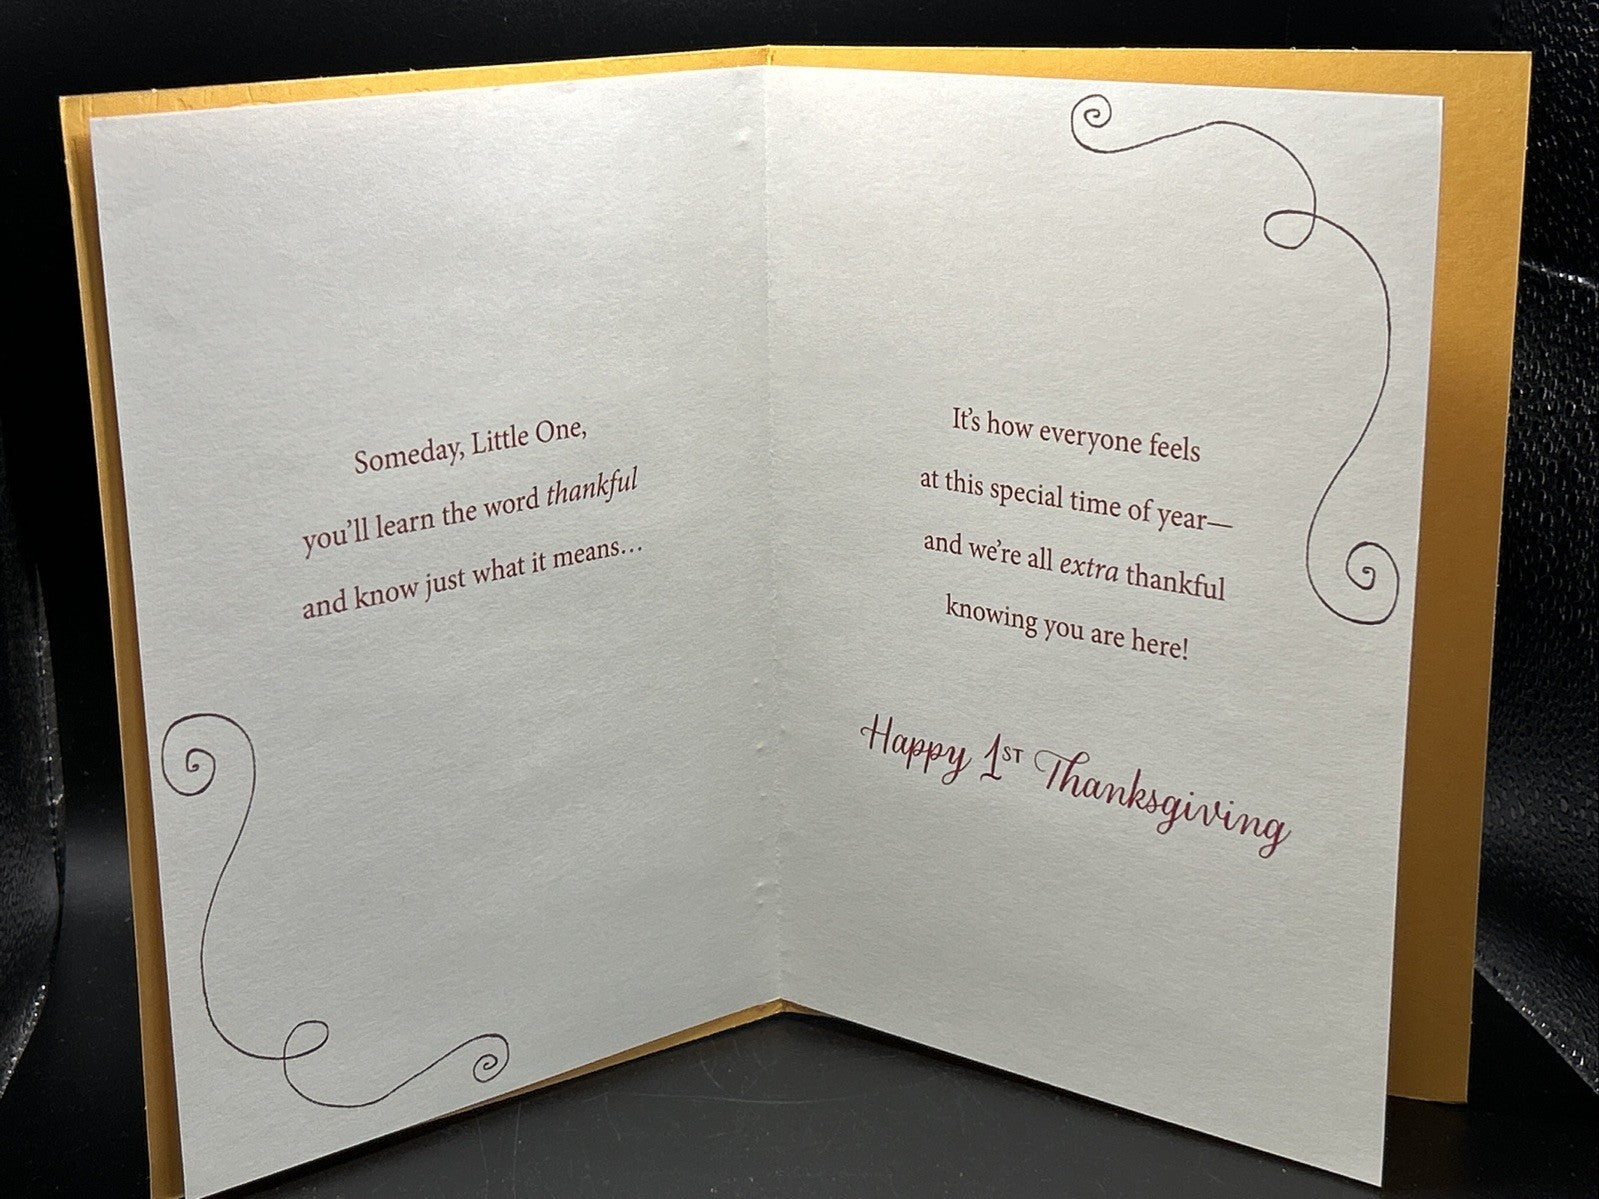 Someday, Little One,
you’ll learn the word thankful
and know just what it means…
It’s how everyone feels
at this special time of year—
and we’re all extra thankful
knowing you are here!
Happy 1ST Thanksgiving